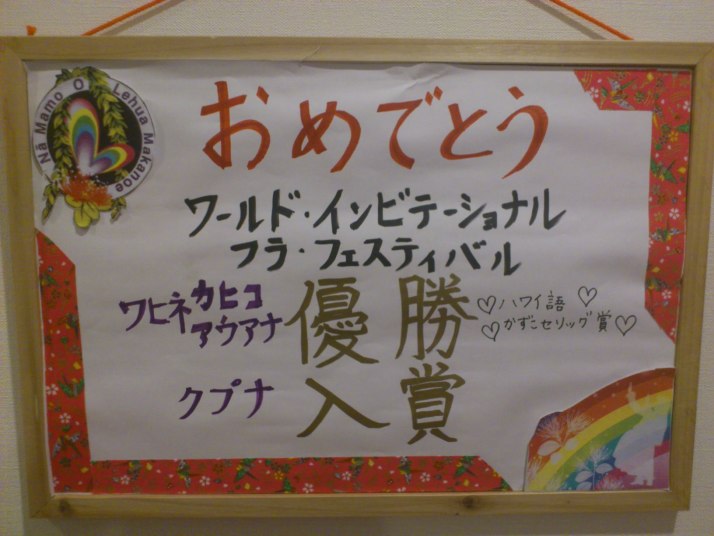 Nā Mamo O Lehua Makanoe
おめでとう
ワールド・インビテーショナル
フラ・フェスティバル
ワヒネ カヒコ
アウアナ
優勝
♡ハワイ語♡
♡かずこセリッグ賞♡
クプナ 入賞